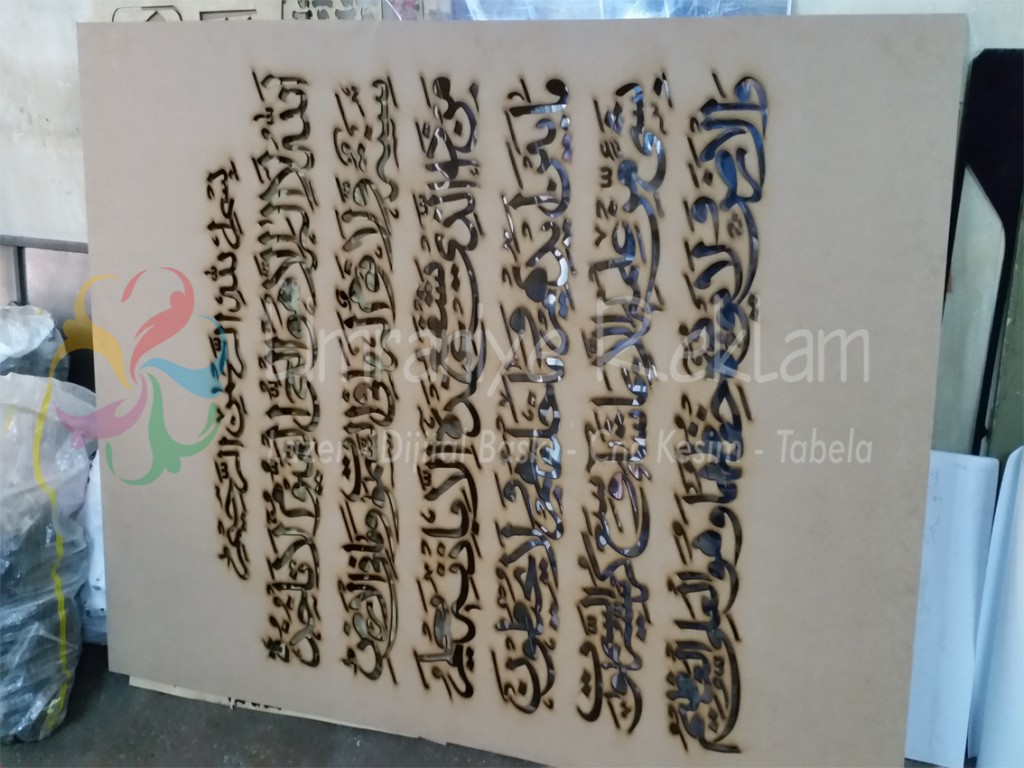 بسم الله الرحمن الرحيم
الله لا اله الا هو الحي القيوم لا تأخذه
سنة ولا نوم له ما في السموات وما في الارض
من ذا الذي يشفع عنده الا باذنه يعلم
ما بين ايديهم وما خلفهم ولا يحيطون
بشيء من علمه الا بما شاء وسع كرسيه السموات
والارض ولا يؤده حفظهما وهو العلي العظيم
Ümraniye Reklam
Lazer - Dijital Baskı - Cnc Kesim - Tabela